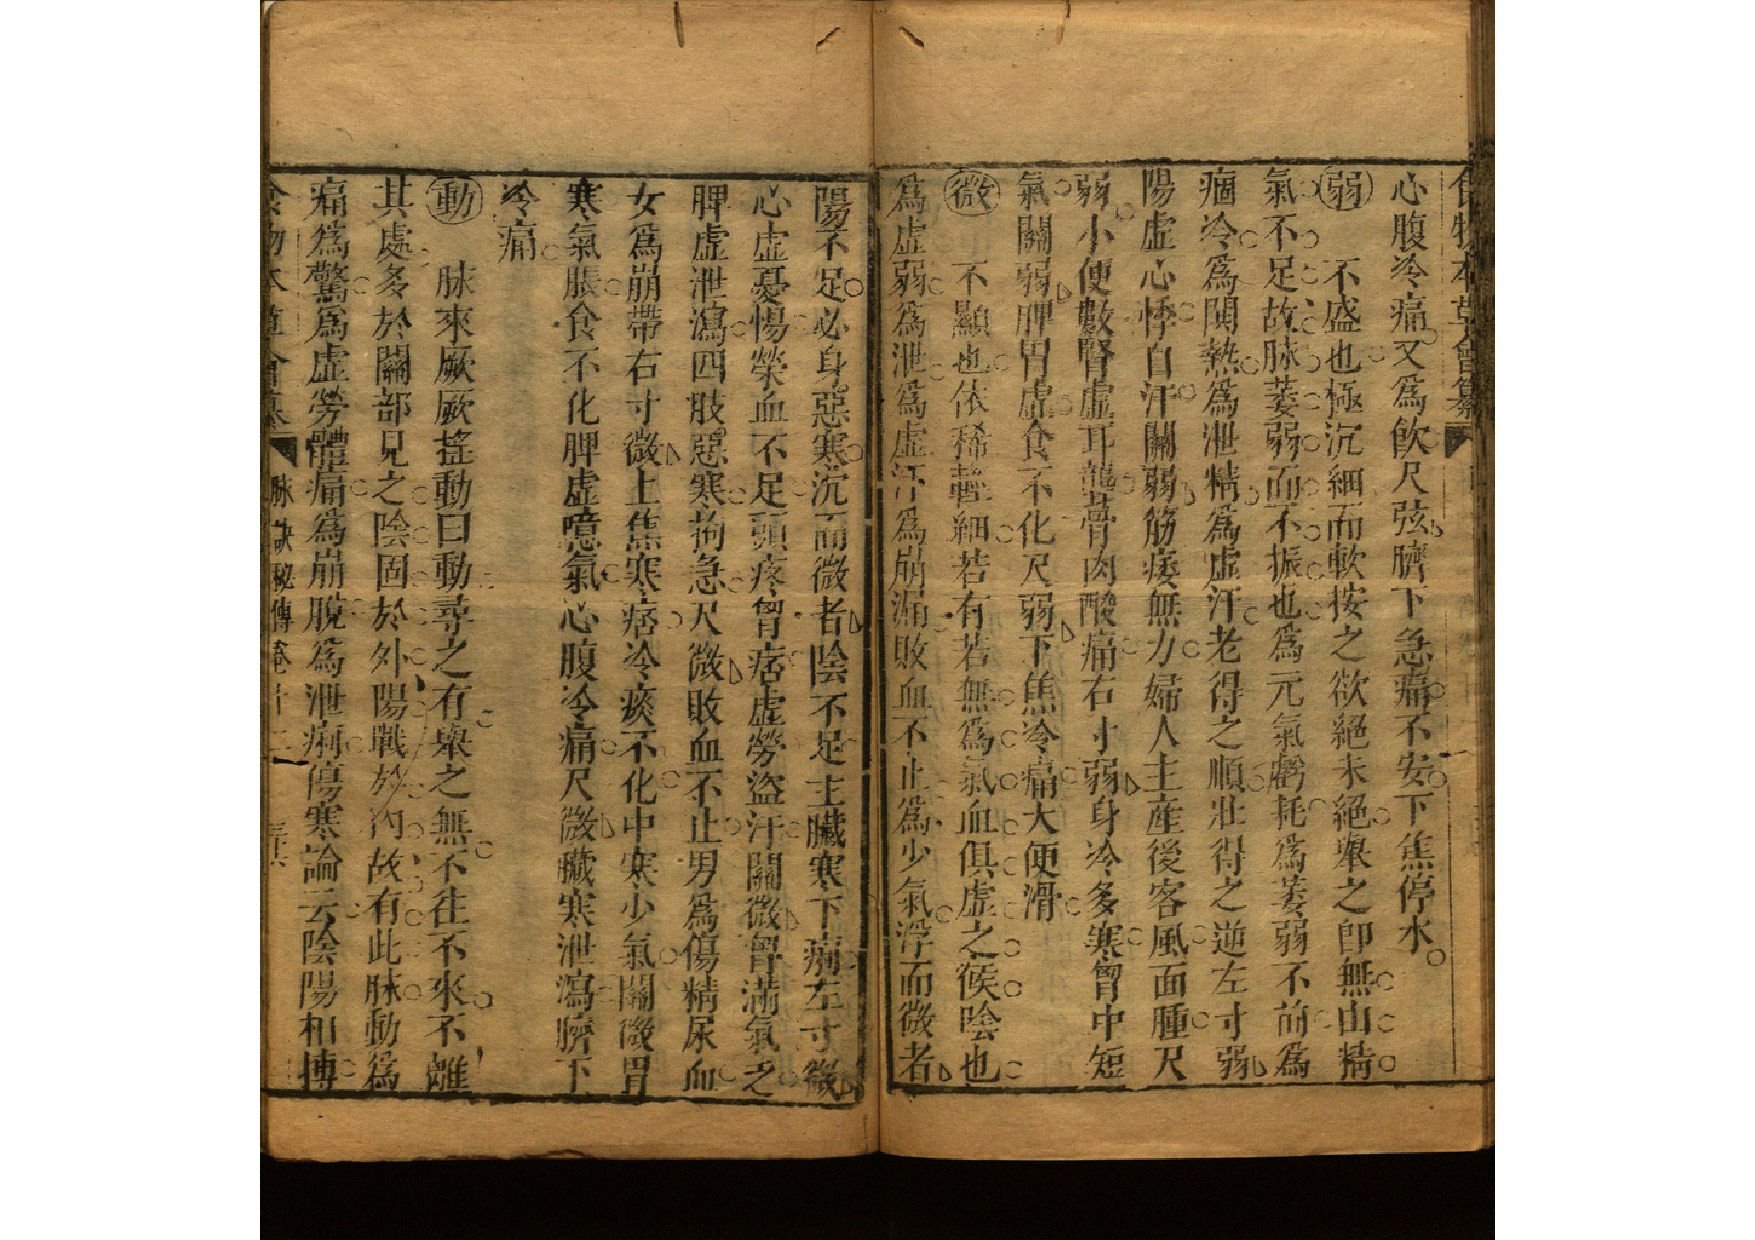 食物本草會纂
心腹冷痛又為飲尺弦臍下急痛不安下焦停水
弱　不盛也極沉細而軟按之欲絕未絕舉之卽無由精
氣不足故脉萎弱而不振也為元氣虧耗為萎弱不前為
痼冷為関熱為泄精為虛汗老得之順壯得之逆左寸弱
陽虛心悸自汗關弱筋痿無力婦人主產後客風面腫尺
弱小便數腎虛耳聾骨肉酸痛右寸弱身冷多寒胷中短
氣關弱脾胃虛食不化尺弱下焦冷痛大便滑
微　不顯也依稀輕細若有若無為氣血俱虛之候陰也
為虛弱為泄為虛汗為崩漏敗血不止為少氣浮而微者
陽不足必身惡寒沉而微者陰不足主臟寒下痢左寸微
心虛憂惕榮血不足頭疼胷痞虛勞盜汗關微胷滿氣乏
脾虛泄瀉四肢惡寒拘急尺微敗血不止男為傷精尿血
女為崩帶右寸微上焦寒痞冷痰不化中寒少氣關微胃
寒氣脹食不化脾虛噫氣心腹冷痛尺微臟寒泄瀉臍下
冷痛
動　脉來厥厥搖動曰動尋之有舉之無不往不來不離
其處多於關部見之陰固於外陽戰於內故有此脉動為
痛為驚為虛勞體痛為崩脫為泄痢傷寒論云陰陽相搏
食物本草會纂　脉訣秘傳卷十二